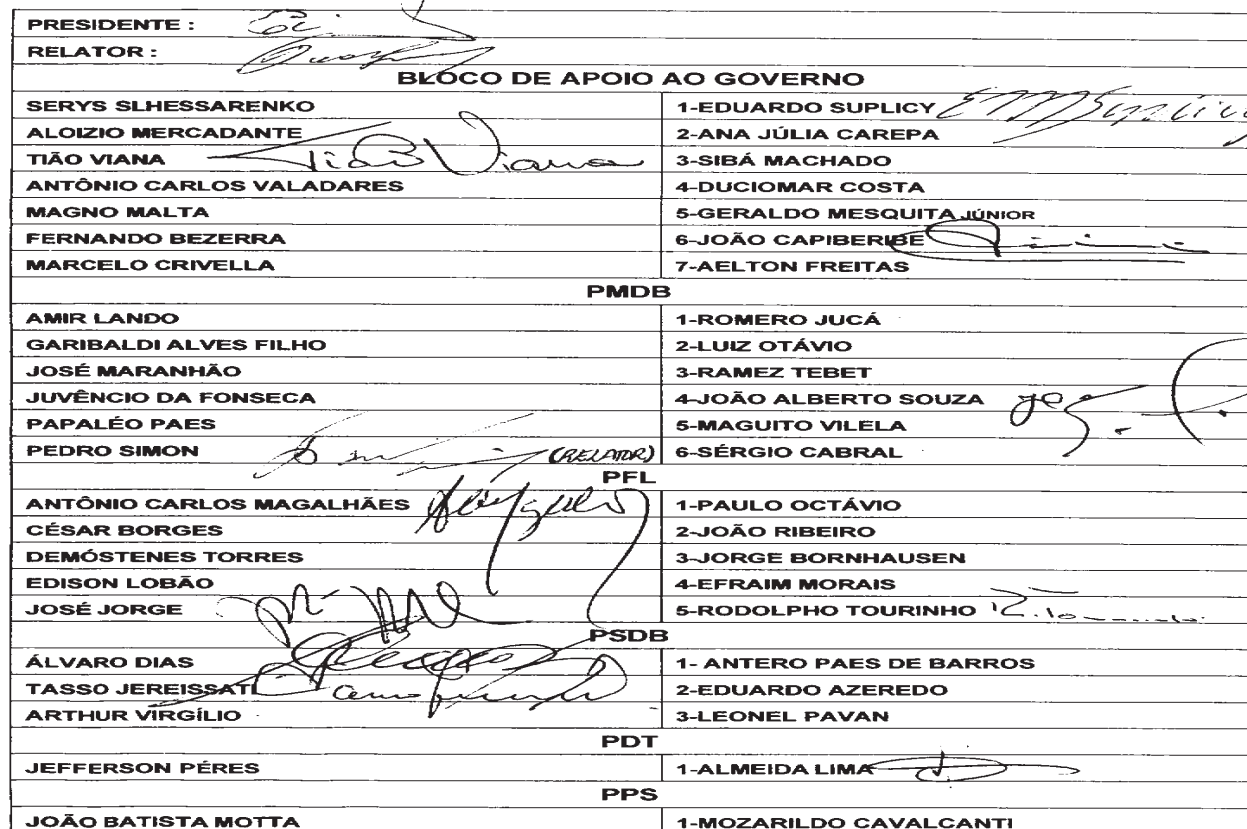 PRESIDENTE :
RELATOR :
BLOCO DE APOIO AO GOVERNO
SERYS SLHESSARENKO 1-EDUARDO SUPLICY EMSuplicy
ALOIZIO MERCADANTE 2-ANA JÚLIA CAREPA
TIÃO VIANA Tião Viana 3-SIBÁ MACHADO
ANTÔNIO CARLOS VALADARES 4-DUCIOMAR COSTA
MAGNO MALTA 5-GERALDO MESQUITA JÚNIOR
FERNANDO BEZERRA 6-JOÃO CAPIBERIBE
MARCELO CRIVELLA 7-AELTON FREITAS
PMDB
AMIR LANDO 1-ROMERO JUCÁ
GARIBALDI ALVES FILHO 2-LUIZ OTÁVIO
JOSÉ MARANHÃO 3-RAMEZ TEBET
JUVÊNCIO DA FONSECA 4-JOÃO ALBERTO SOUZA
PAPALÉO PAES 5-MAGUITO VILELA
PEDRO SIMON (RELATOR) 6-SÉRGIO CABRAL
PFL
ANTÔNIO CARLOS MAGALHÃES 1-PAULO OCTÁVIO
CÉSAR BORGES 2-JOÃO RIBEIRO
DEMÓSTENES TORRES 3-JORGE BORNHAUSEN
EDISON LOBÃO 4-EFRAIM MORAIS
JOSÉ JORGE 5-RODOLPHO TOURINHO
PSDB
ÁLVARO DIAS 1- ANTERO PAES DE BARROS
TASSO JEREISSATI 2-EDUARDO AZEREDO
ARTHUR VIRGÍLIO 3-LEONEL PAVAN
PDT
JEFFERSON PÉRES 1-ALMEIDA LIMA
PPS
JOÃO BATISTA MOTTA 1-MOZARILDO CAVALCANTI